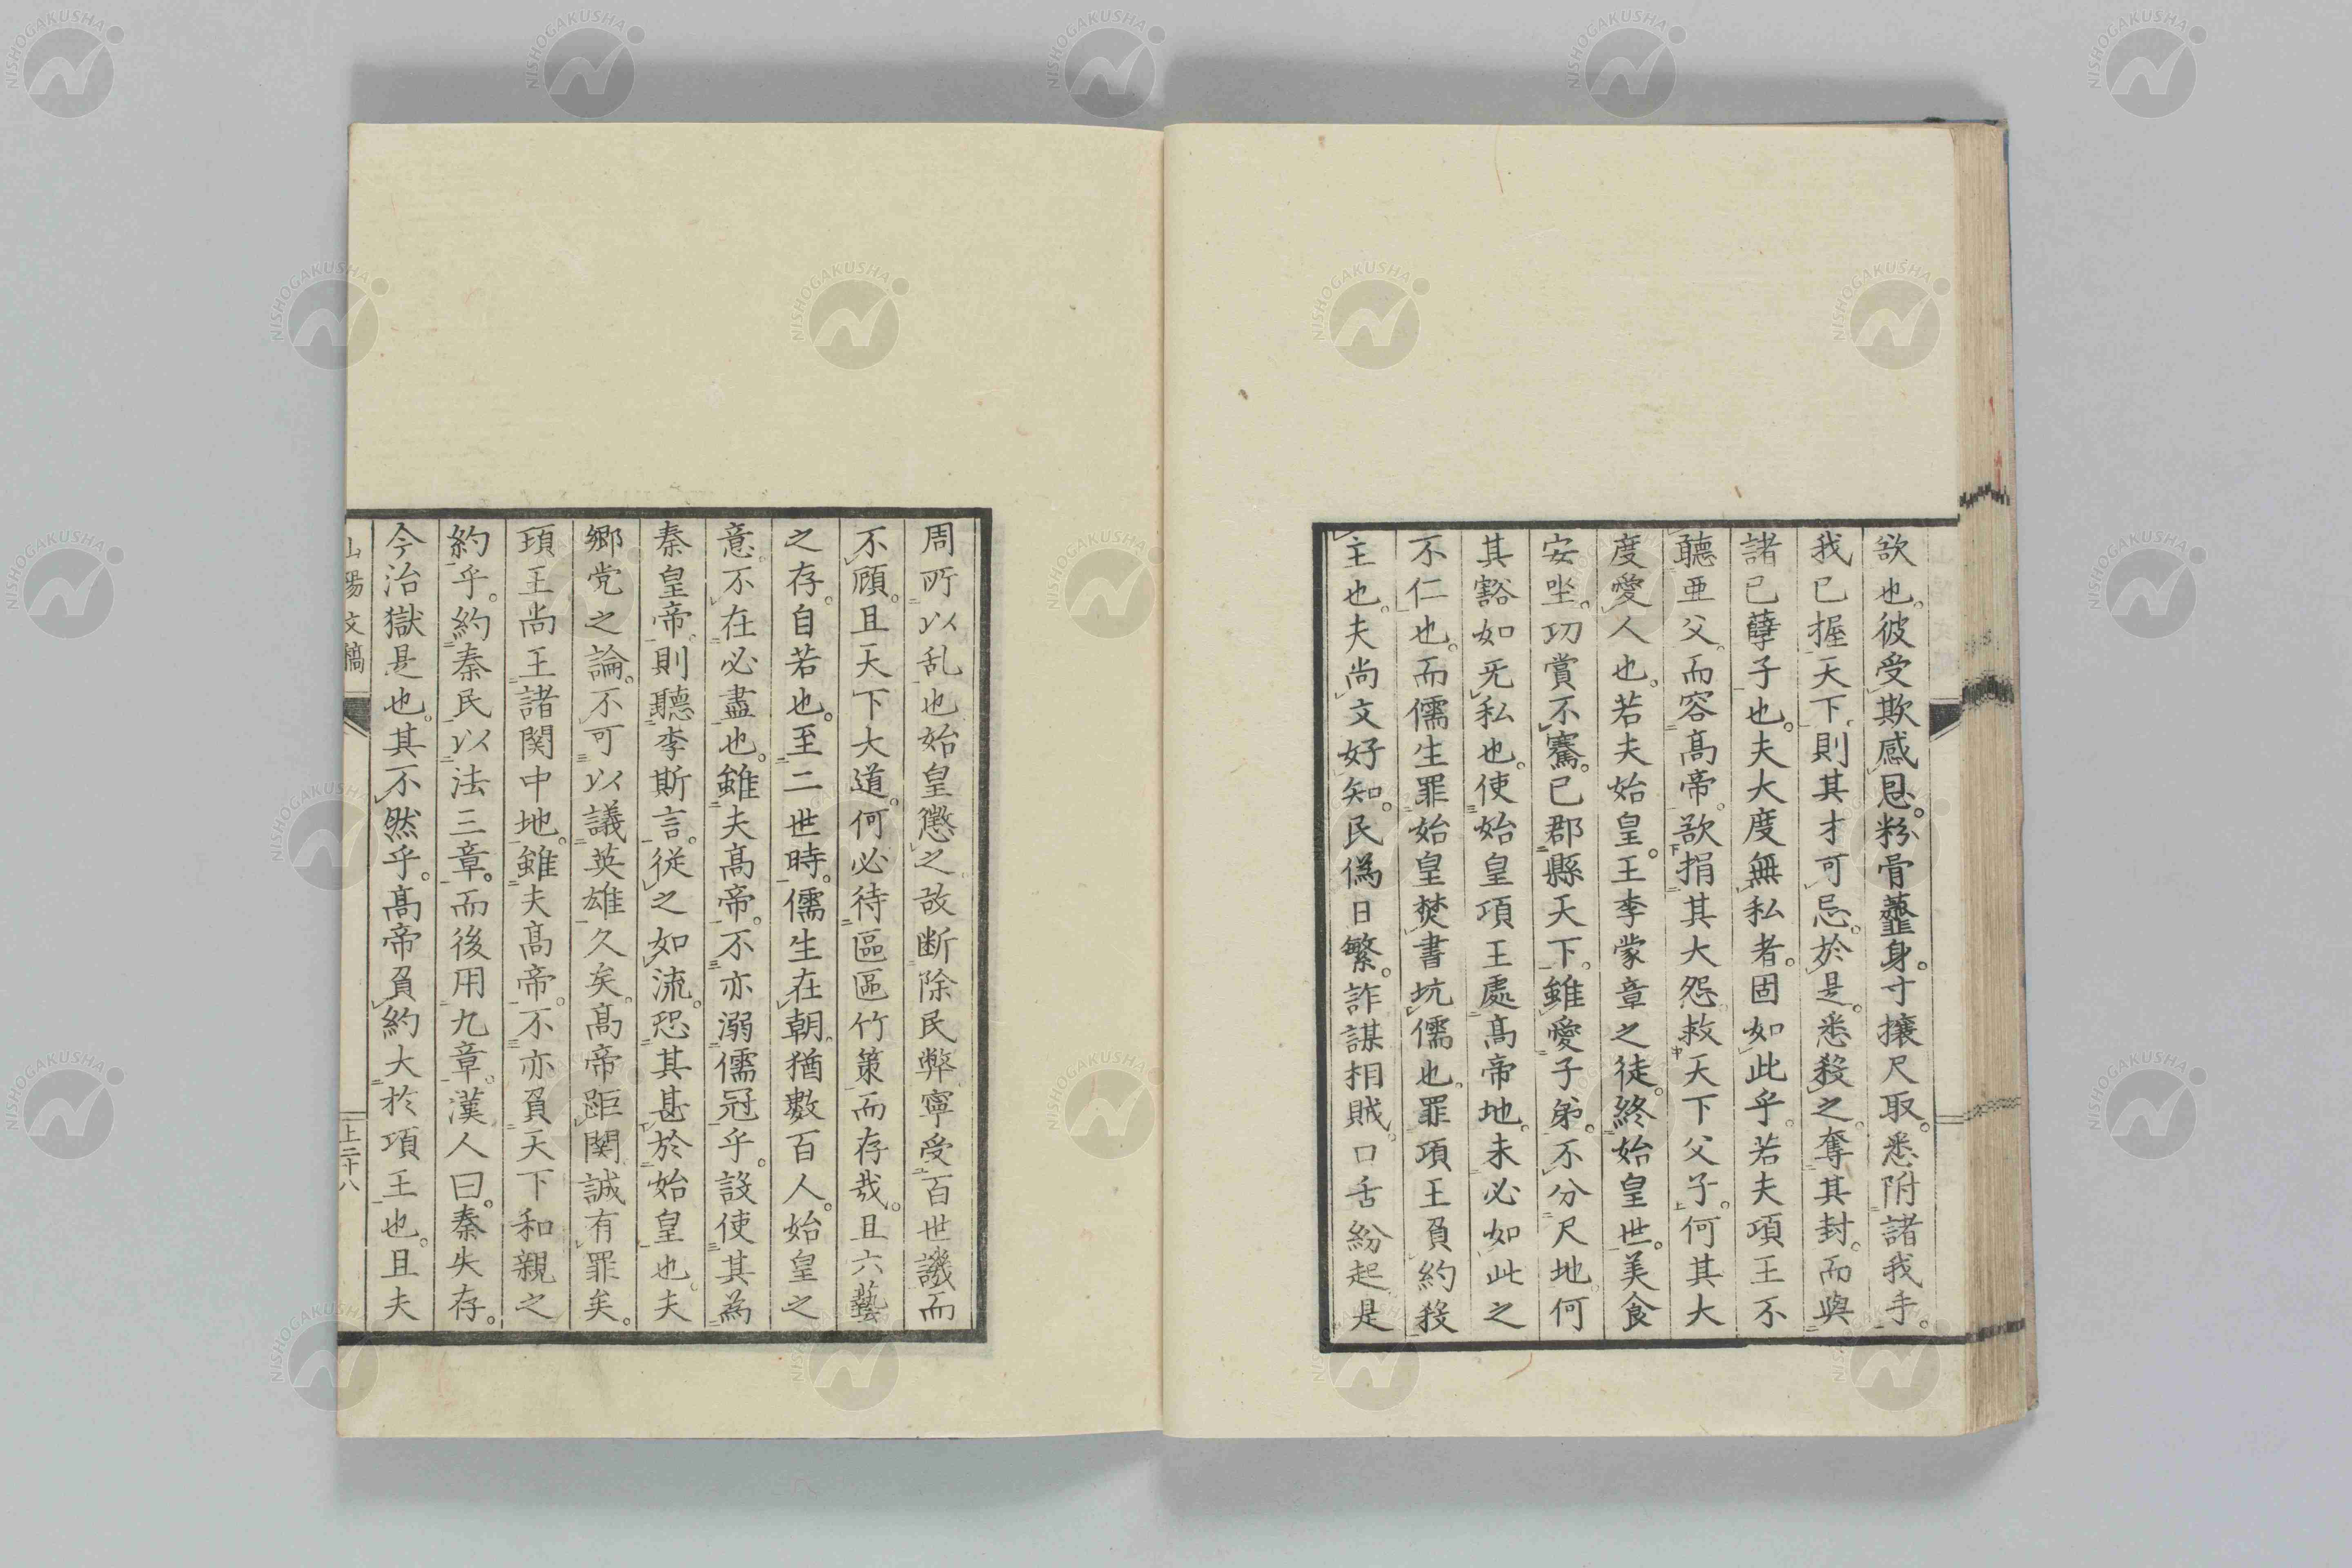 欲也。彼受欺感恩。粉骨虀身。寸攘尺取。悉附諸我手。
我已握天下。則其才可忌。於是。悉殺之。奪其封。而與
諸已孽子也。夫大度無私者。固如此乎。若夫項王不
聽亜父。而容髙帝。欲捐其大怨救天下父子。何其大
度愛人也。若夫始皇。王李蒙章之徒。終始皇世。美食
安坐。功賞不騫。已郡縣天下。雖愛子弟。不分尺地。何
其豁如无私也。使始皇項王處髙帝地。未必如此之
不仁也。而儒生罪始皇焚書坑儒也。罪項王負約殺
主也。夫尚文好知。民偽日繁。詐謀相賊。口舌紛起。是
周所以乱也。始皇懲之。故断除民弊。寧受百世譏而
不顧。且天下大道。何必待區區竹策而存哉。且六藝
之存。自若也。至二世時。儒生在朝。猶數百人。始皇之
意。不在必盡也。雖夫髙帝。不亦溺儒冠乎。設使其為
秦皇帝。則聽李斯言。從之如流。恐其甚於始皇也。夫
郷党之論。不可以議英雄久矣。髙帝距関誠有罪矣。
項王尚王諸関中地。雖夫髙帝。不亦負天下和親之
約乎。約秦民以法三章。而後用九章。漢人曰。秦失存。
今治獄是也。其不然乎。髙帝負約大於項王也。且夫
山陽文稿
上二十八
NISHOGAKUSHA